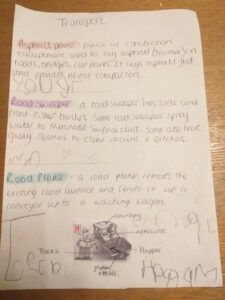 Transport
Asphalt paver - piece of constrction
equipment used to lay asphalt (tarmac) on
roads, bridges, car parks. It lays asphalt flat
and provides minor compaction.
Road Sweeper - a road sweeper has side and
front brushes. Some road sweepers spray
water to minimise surface dust. Some also have
gulley cleaners to clear around
Road Planer - a road planer removes the
existing road surface and sends it up a
conveyor up to a waiting wagon.
canopy
exhaust
Tracks
Hopper